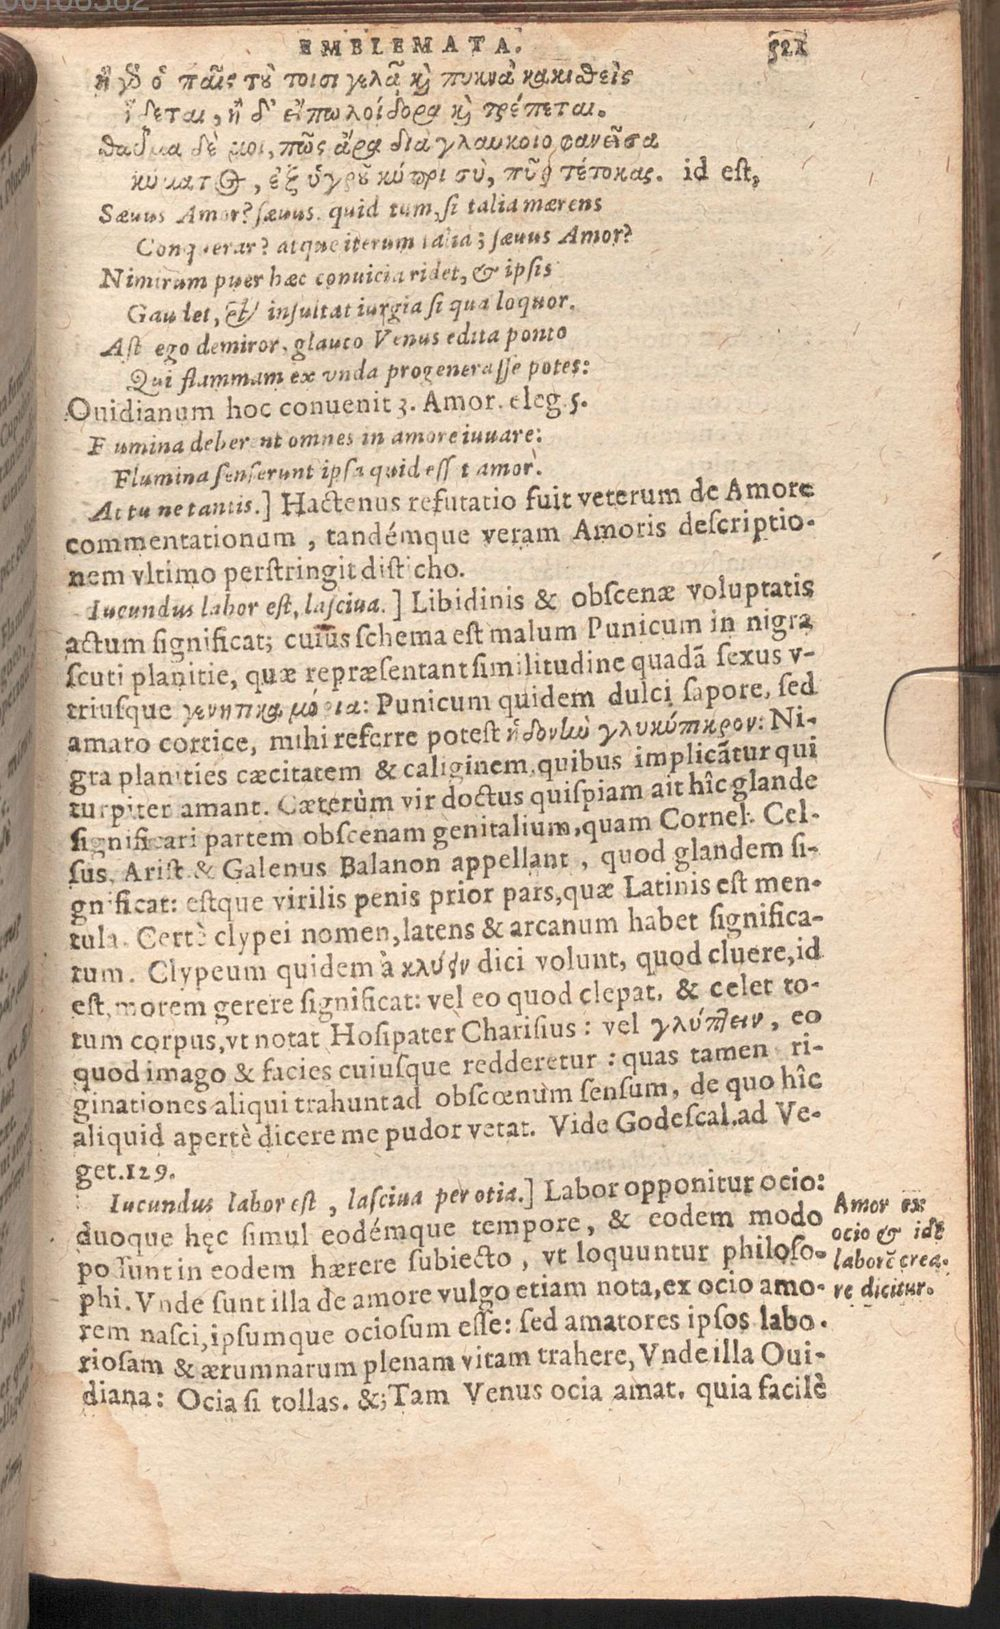 EMBLEMATA. 521
ἦ γὸ ὁ παῖς τού τοισι γελᾷ κὶ πυκνὰ κακισθεὶς
ἥδεται, ἢ δ' εἴπω λοίδορα κὶ τρέπεται.
θαῦμα δέ μοι, πῶς ἄρα διὰ γλαυκοῖο φανεῖσα
κύματος, ἐξ ὑγροῦ κύπρι σὺ, πῦρ τέτοκας. id est,
Sæuus Amor? sæuus. quid tum, si talia mærens
Conquerar? atque iterum talia; sæuus Amor?
Nimirum puer hæc conuicia ridet, & ipsis
Gaudet, & insultat iurgia si qua loquor.
Ast ego demiror, glauco Venus edita ponto
Qui flammam ex vnda progenerasse potes:
Ouidianum hoc conuenit 3. Amor. eleg. 5.
F umina deberent omnes in amore iuuare:
Flumina senserunt ipsa quid esset amor.
At tu ne tantis.] Hactenus refutatio fuit veterum de Amore
commentationum, tandémque veram Amoris descriptio-
nem vltimo perstringit disticho.
Iucundus labor est, lasciua.] Libidinis & obscenæ voluptatis
actum significat; cuius schema est malum Punicum in nigra
scuti planitie, quæ repræsentant similitudine quadã sexus v-
triusque γενητικὰ μόρια: Punicum quidem dulci sapore, sed
amaro cortice, mihi referre potest ἡδονὴν γλυκύπικρον: Ni-
gra planities cæcitatem & caliginem, quibus implicãtur qui
turpiter amant. Cæterùm vir doctus quispiam ait hîc glande
significari partem obscenam genitalium, quam Cornel. Cel-
sus, Arist. & Galenus Balanon appellant, quod glandem si-
gnificat: estque virilis penis prior pars, quæ Latinis est men-
tula. Certè clypei nomen, latens & arcanum habet significa-
tum. Clypeum quidem à κλύειν dici volunt, quod cluere, id
est, morem gerere significat: vel eo quod clepat, & celet to-
tum corpus, vt notat Hosipater Charisius: vel γλύπτειν, eo
quod imago & facies cuiusque redderetur: quas tamen ri-
ginationes aliqui trahunt ad obscœnum sensum, de quo hîc
aliquid apertè dicere me pudor vetat. Vide Godescal. ad Ve-
get. 129.
Iucundus labor est, lasciua per otia.] Labor opponitur ocio:
duoque hęc simul eodémque tempore, & eodem modo
possunt in eodem hærere subiecto, vt loquuntur philoso-
phi. Vnde sunt illa de amore vulgo etiam nota, ex ocio amo-
rem nasci, ipsumque ociosum esse: sed amatores ipsos labo-
riosam & ærumnarum plenam vitam trahere, Vnde illa Oui-
diana: Ocia si tollas. &; Tam Venus ocia amat. quia facilè
Amor ex
ocio & idẽ
laborẽ crea-
re dicitur.